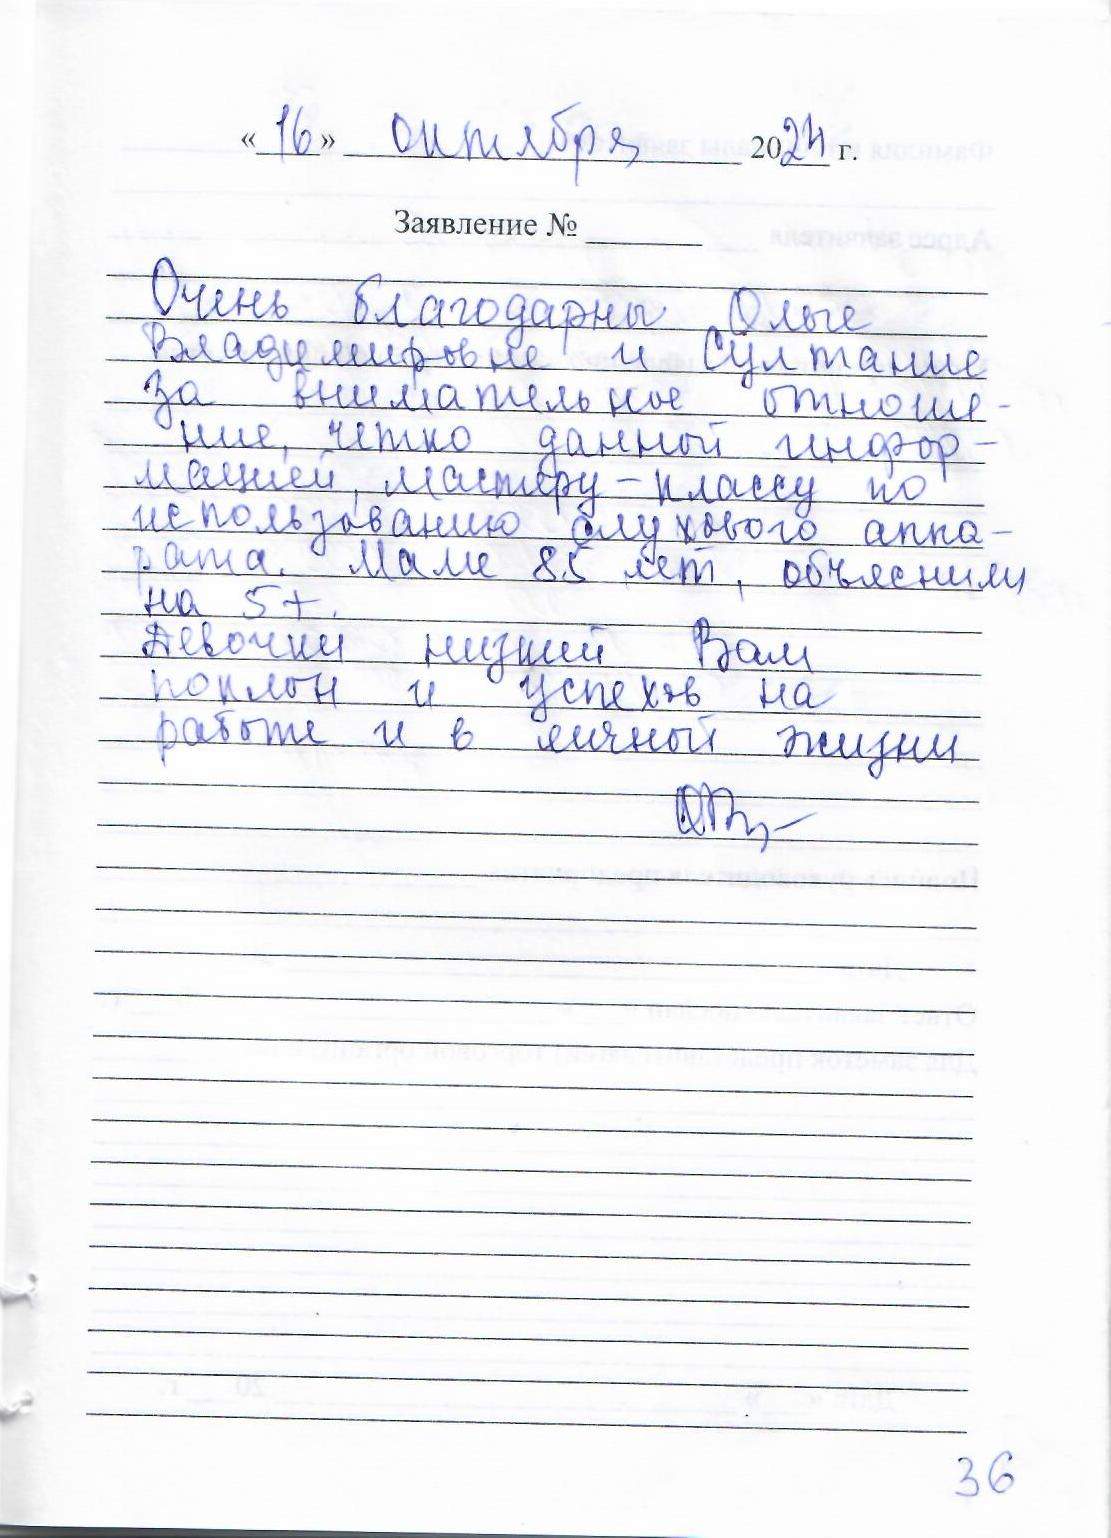 «16» октября 2024 г.
Заявление №
Очень благодарны Ольге
Владимировне и Султание
за внимательное отноше-
ние, четко данной инфор-
мацией, мастеру-классу по
использованию слухового аппа-
рата. Маме 85 лет, объяснили
на 5+.
Девочки низкий Вам
поклон и успехов на
работе и в личной жизни
36